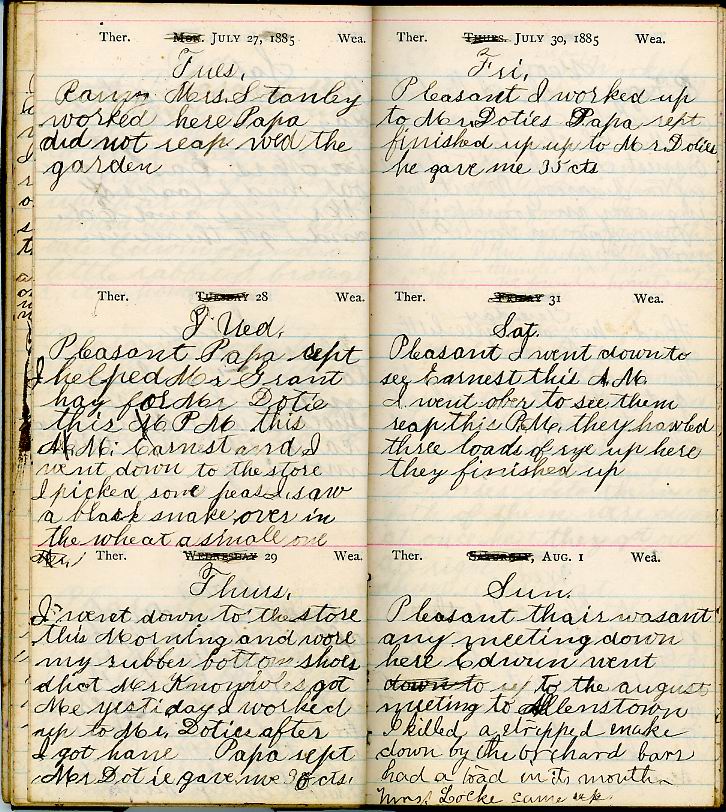 Ther. Mon. JULY 27, 1885 Wea.
Tues.
Rainy Mrs. Stanley
worked here Papa
did not reap wed the
garden
Ther. TUESDAY 28 Wea.
Wed.
Pleasant Papa rept
I helped Mr Grant
hay for Mr Dotie
this P M this
A M. Earnest and I
went down to the store
I picked some peas I saw
a black snake over in
the wheat a small one
Ther. WEDNESDAY 29 Wea.
Thurs.
I went down to the store
this Morning and wore
my rubber bottom shoes
that Mr Knowles got
Me yestiday I worked
up to Mr. Doties after
I got hane Papa rept
Mr Dotie gave me cts
Ther. THURS. JULY 30, 1885 Wea.
Fri.
Pleasant I worked up
to Mr. Doties Papa rept
finished up up to Mr. Doties
he gave me 35 cts
Ther. FRIDAY 31 Wea.
Sat.
Pleasant I went down to
see Earnest this A M.
I went over to see them
reap this P.M. they hawled
three loads of rye up here
they finished up
Ther. SATURDAY, AUG. 1 Wea.
Sun.
Pleasant thair wasant
any meeting down
here Edwin went
down to to the august
meeting to Allenstown
I killed a stripped snake
down by the orchard bars
had a toad in its mouth
Mrs. Locke came up.